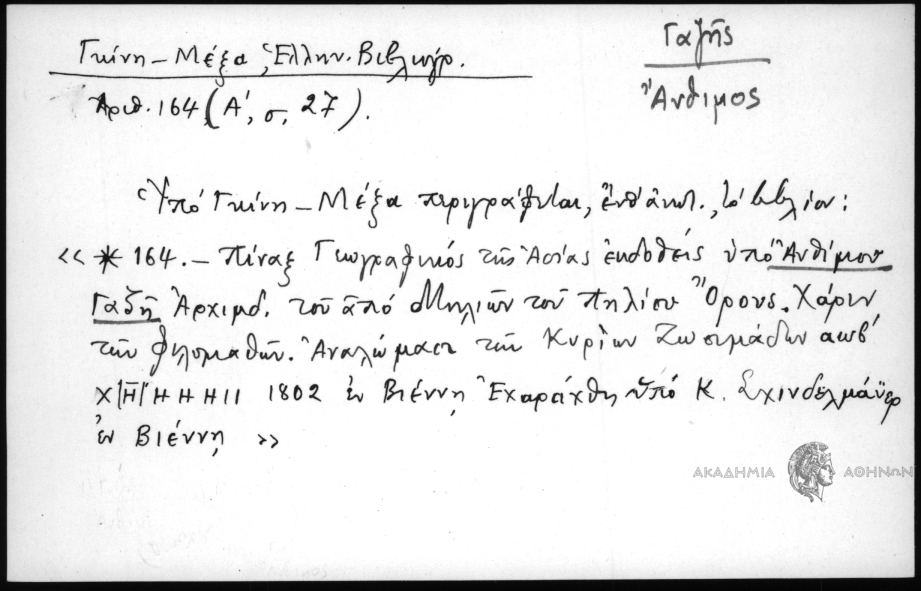 Γαζῆς
Ἄνθιμος
Γκίνη – Μέξα, Ἑλλην. Βιβλιογρ.
Ἀριθ. 164 (Α', σ. 27).
Ὑπὸ Γκίνη – Μέξα περιγράφεται, ἔνθ' ἀνωτ., τὸ βιβλίον:
« * 164. – Πίναξ Γεωγραφικὸς τῆς Ἀσίας ἐκδοθεὶς ὑπὸ Ἀνθίμου
Γαζῆ Ἀρχιμδ. τοῦ ἀπὸ Μηλιῶν τοῦ Πηλίου Ὄρους. Χάριν
τῶν φιλομαθῶν. Ἀναλώμασι τῶν Κυρίων Ζωσιμάδων αωβ'
Χ|Η|ΗΗΗΙΙ 1802 ἐν Βιέννῃ Ἐχαράχθη ὑπὸ Κ. Σχινδελμάϋερ
ἐν Βιέννῃ »
ΑΚΑΔΗΜΙΑ ΑΘΗΝΩΝ